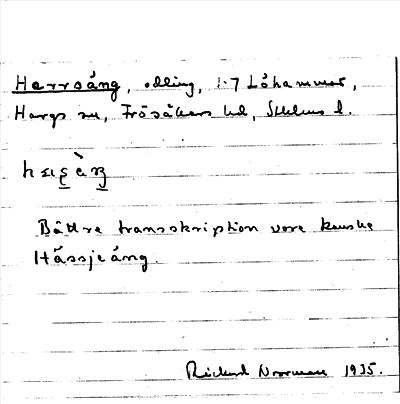 Herrsång, odling, 1:7 Löhammar,
Hargs sn, Frösåkers hd, Sthlms l.
Bättre transskription vore kanske
Hässjeång.
Rickard Norrman 1935.